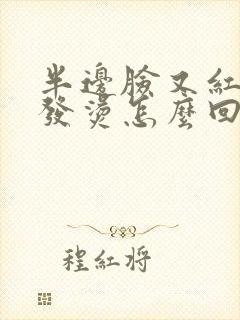 半邊臉又紅
發燙怎麼回
程紅將